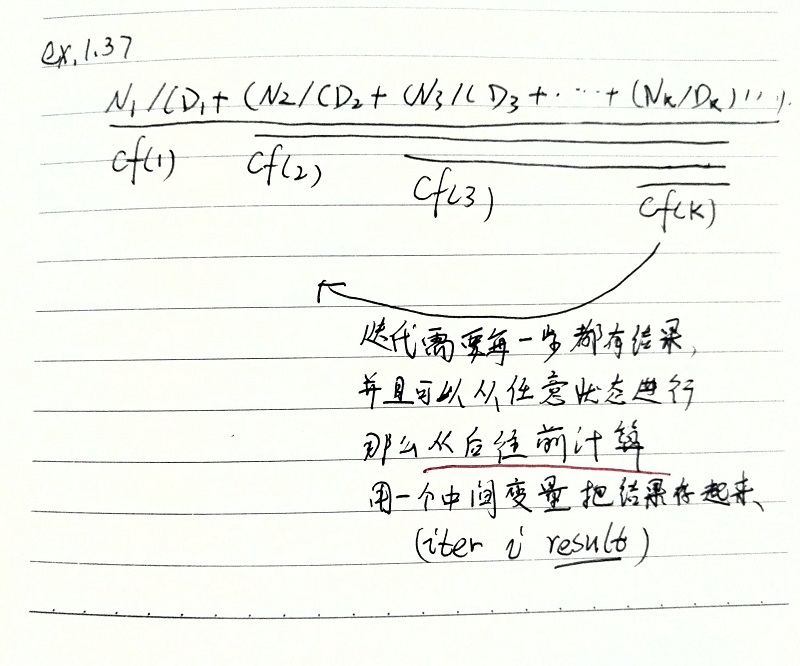 ex.1.37
N1/(D1+(N2/(D2+(N3/(D3+…+(Nk/Dk)…).
cf(1) cf(2) cf(3) cf(k)
迭代需要每一步都有结果,
并且可以从任意状态进行
那么从后往前计算
用一个中间变量把结果存起来、
(iter i result)